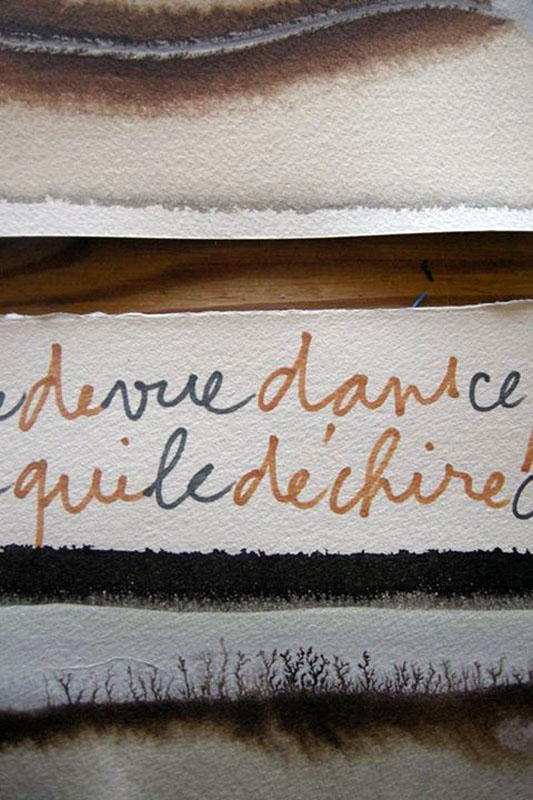 de vue dans ce
qui le déchire